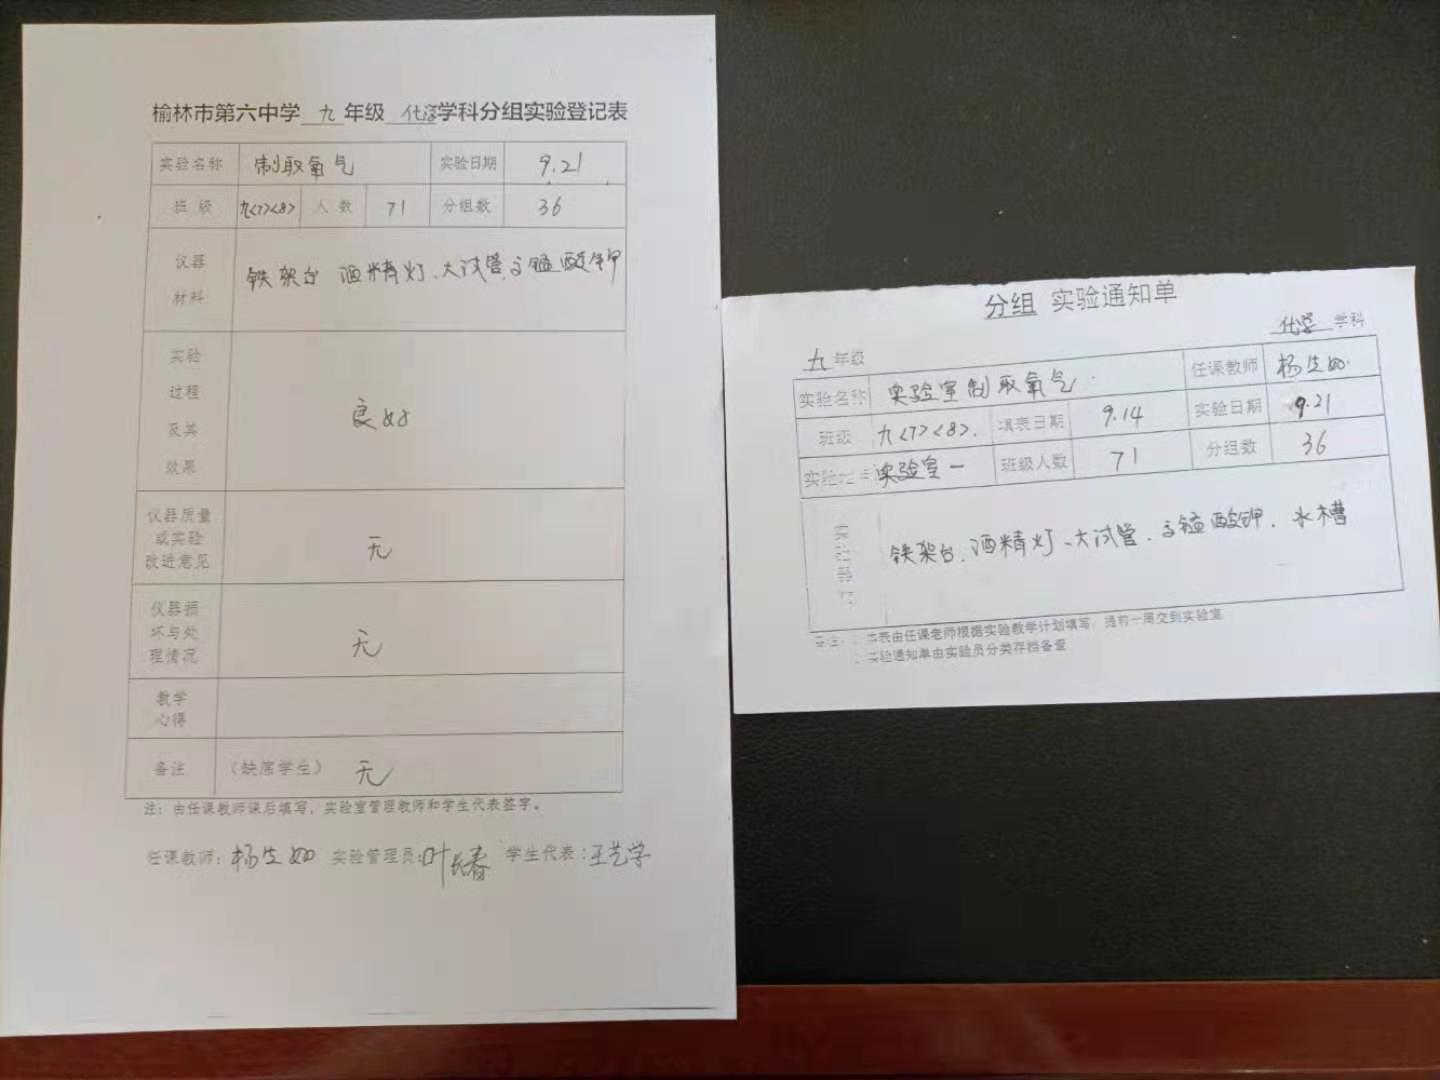 榆林市第六中学 九 年级 化学 学科分组实验登记表
实验名称 制取氧气 实验日期 9.21
班 级 九<7><8> 人 数 71 分组数 36
仪器
材料
铁架台 酒精灯、大试管、高锰酸钾
实验
过程
及其
效果
良好
仪器质量
或实验
改进意见
无
仪器损
坏与处
理情况
无
教学
心得
备注 (缺席学生) 无
注：由任课教师课后填写，实验室管理教师和学生代表签字。
任课教师：杨 实验管理员：叶长春 学生代表：王艺学
分组 实验通知单
化学 学科
九 年级
实验名称 实验室制取氧气 任课教师 杨
班级 九<7><8>. 填表日期 9.14 实验日期 9.21
实验地点 实验室一 班级人数 71 分组数 36
实
器
铁架台、酒精灯、大试管、高锰酸钾、水槽
备注： 本表由任课老师根据实验教学计划填写，提前一周交到实验室
实验通知单由实验员分类存档备查